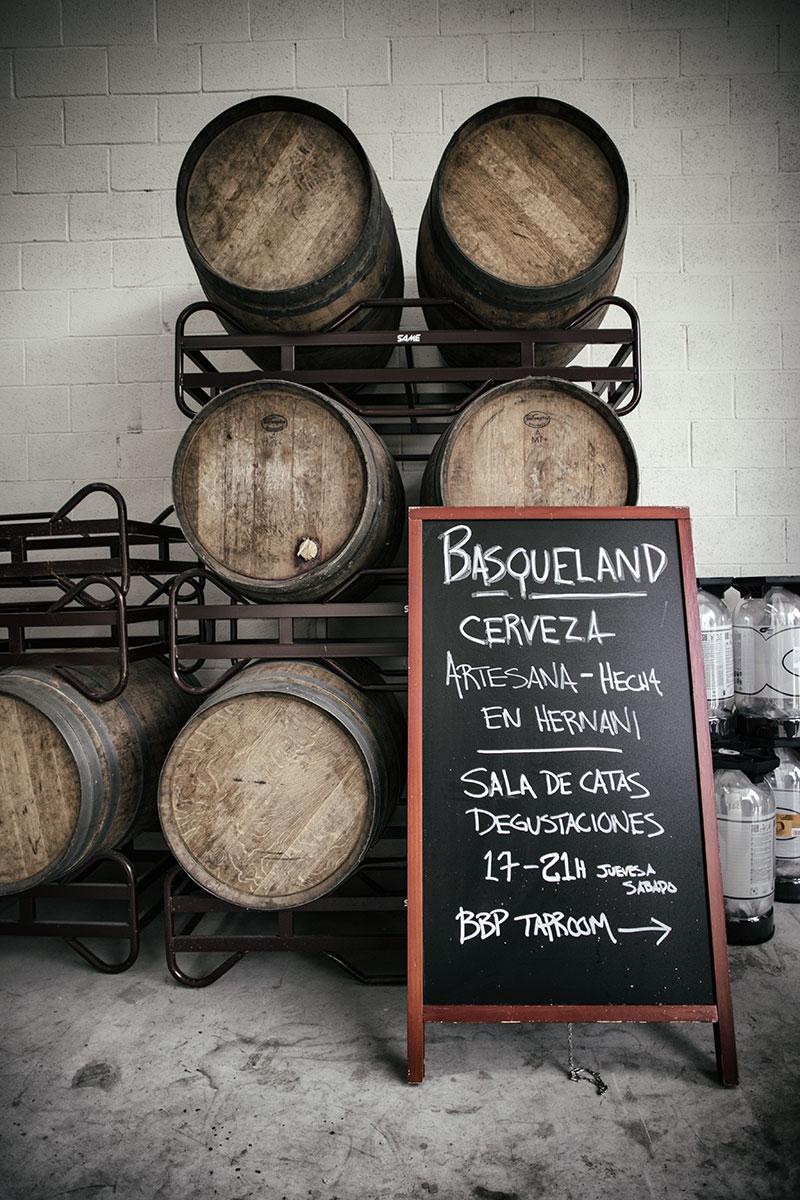 SAME
A
MT+
BASQUELAND
CERVEZA
ARTESANA-HECHA
EN HERNANI
SALA DE CATAS
DEGUSTACIONES
17-21H JUEVES A
SABADO
BBP TAPROOM →